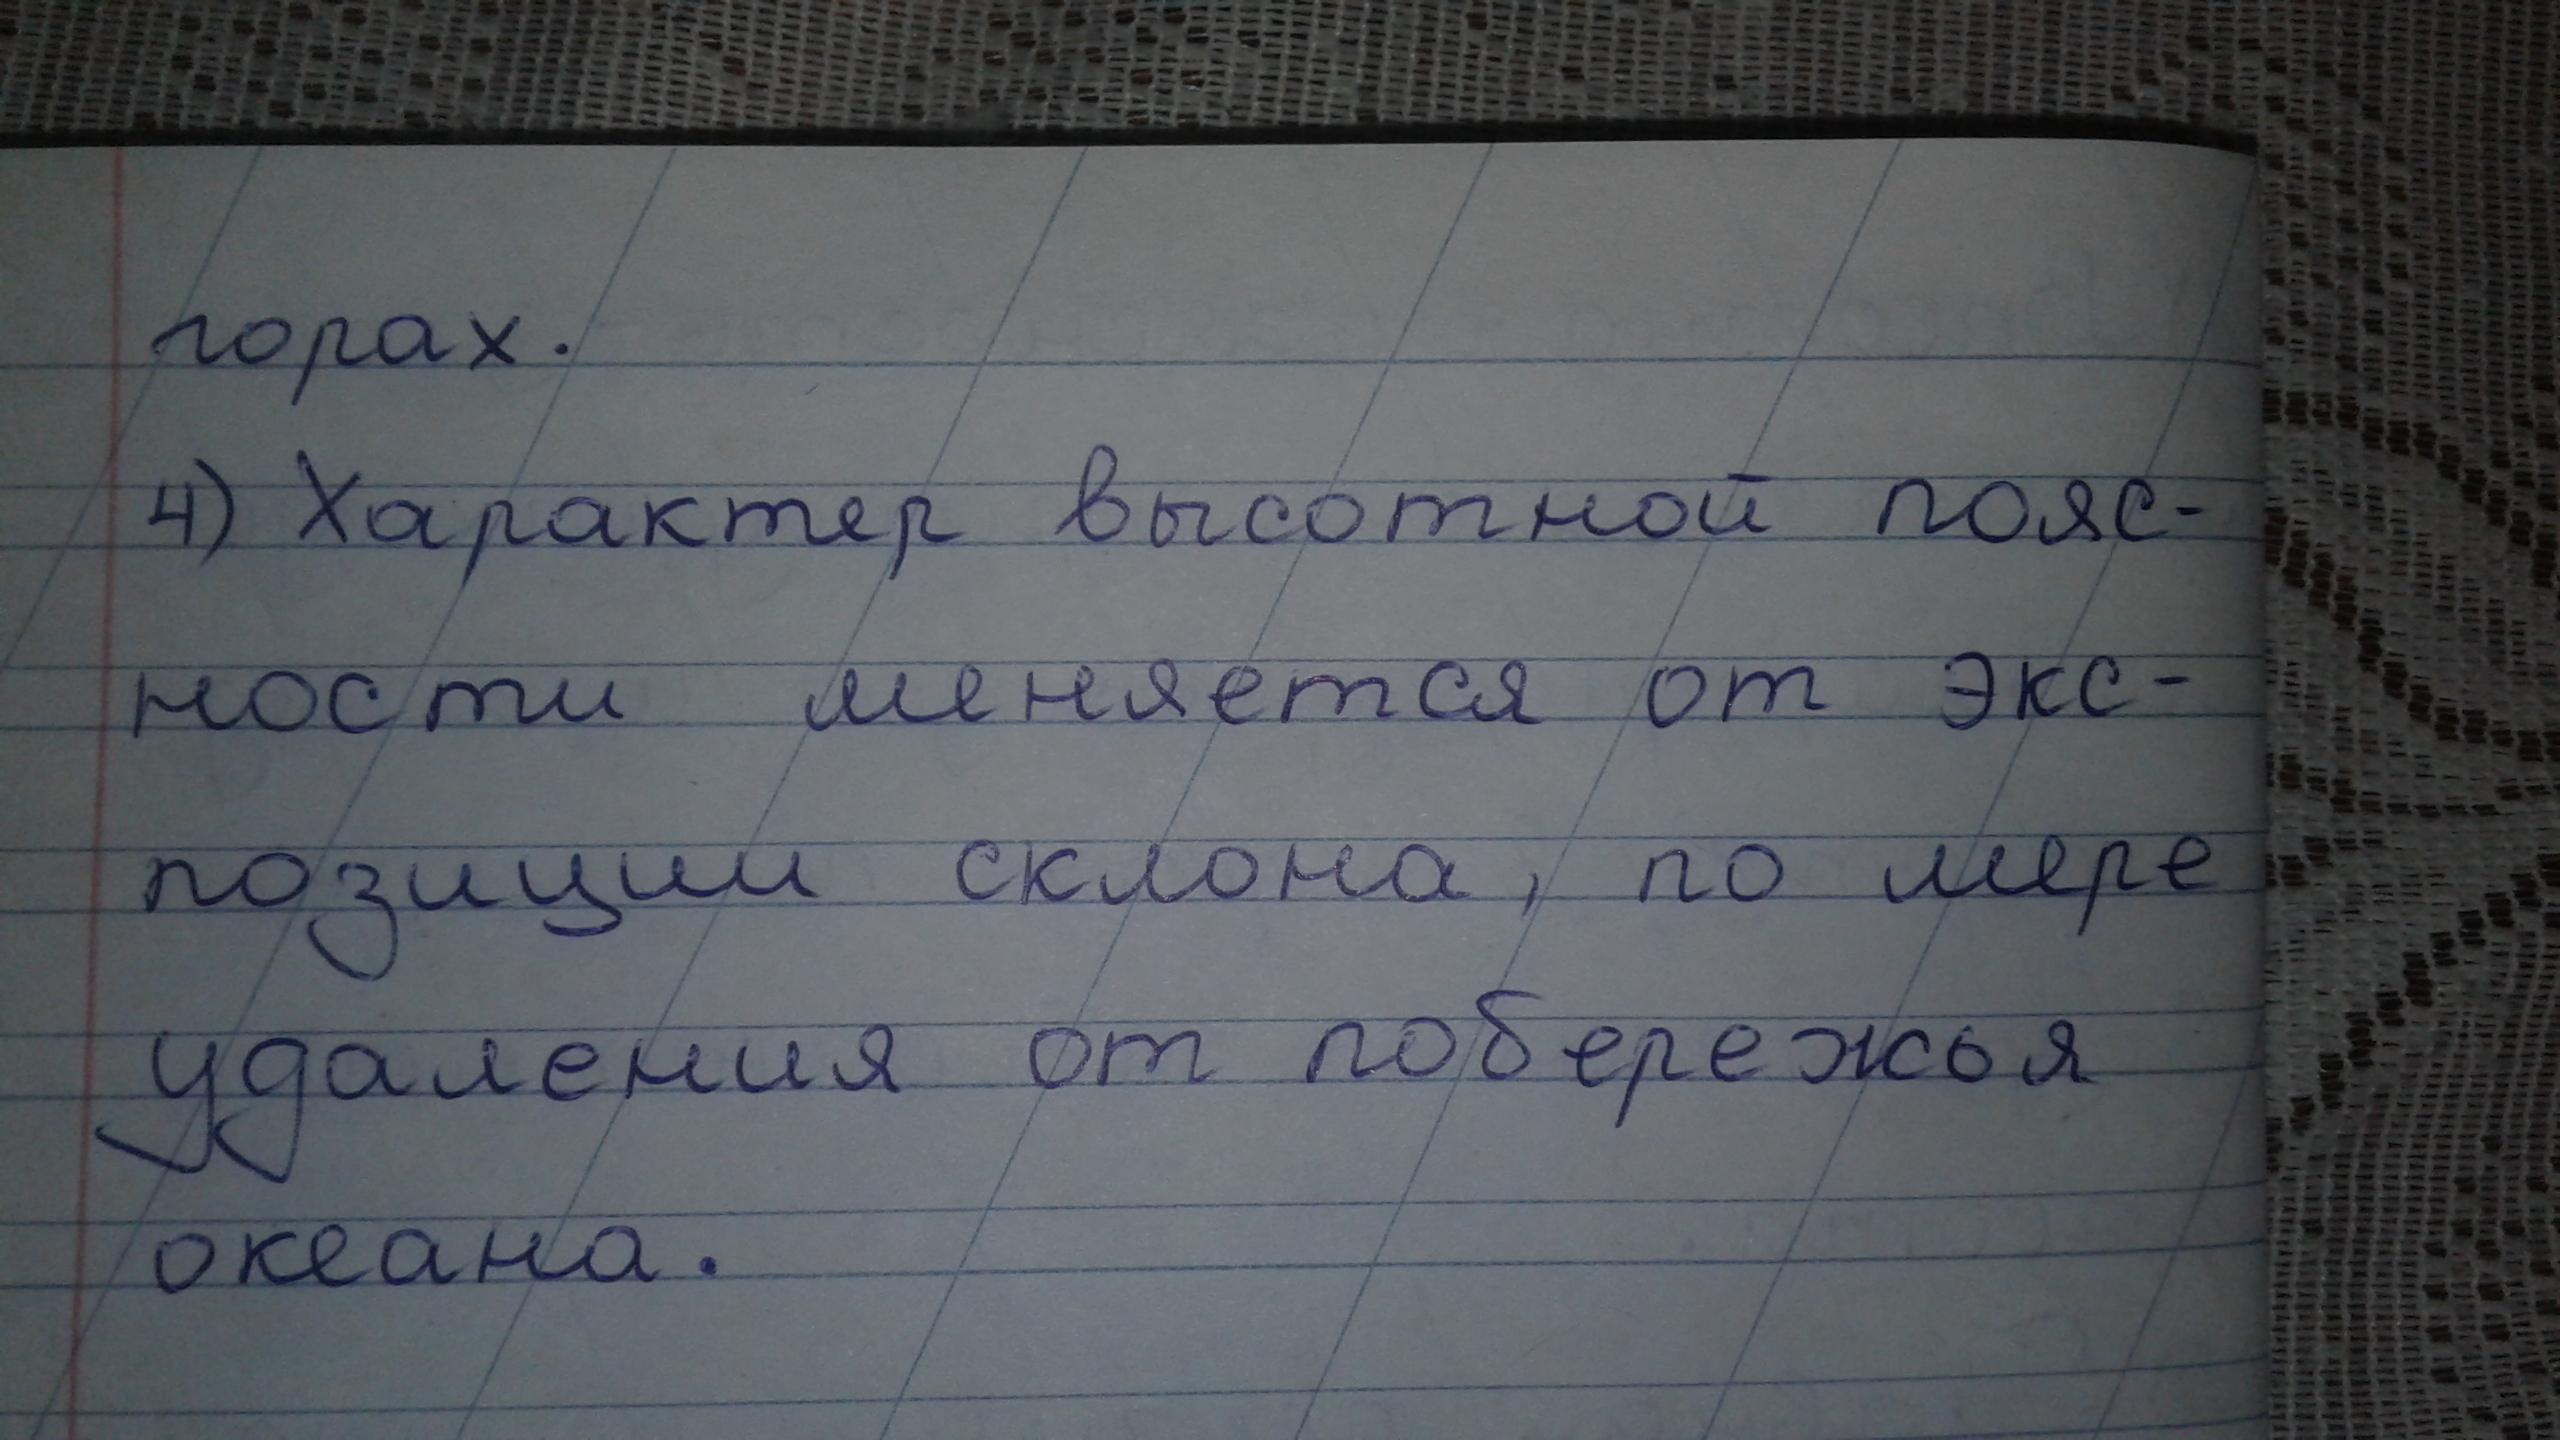 горах.
4) Характер высотной пояс-
ности меняется от экс-
позиции склона, по мере
удаления от побережья
океана.